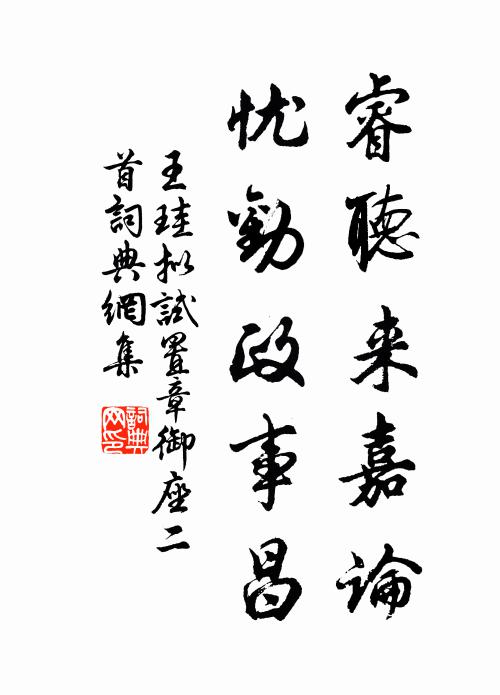 睿聽来嘉論
忧勤政事昌
王珪拟試置章御座二
首詞典網集
詞典
网印